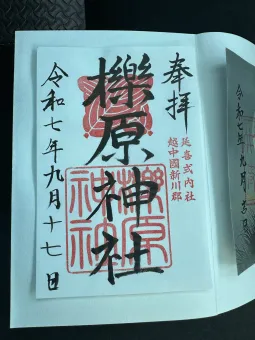 奉拝
延喜式内社
越中國新川郡
櫟原神社
令和七年九月十七日
櫟原
神社
令和七年九月